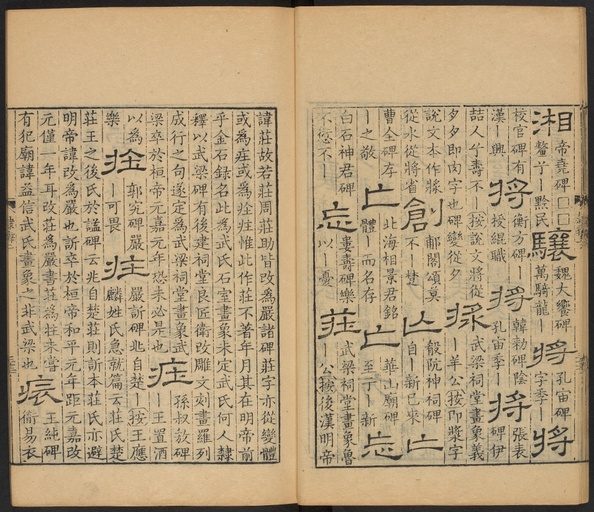 湘帝堯碑□□驤魏大饗碑將孔宙碑將
校官碑有將衡方碑將韓勑碑陰將張表
漢興將授緄職將孔宙季將碑伊
喆人兮壽不按說文將從武梁祠堂畫象義
夕夕即肉字也碑變從夕羊公按即漿字
說文本作將創郙閣頌莫亾殽阬神祠碑亡
從水從將省不楚自新已來
曹全碑存亡北海相景君銘亡華山廟碑忘
之敬體而名存至于新
白石神君碑忘婁壽碑樂莊武梁祠堂畫象魯
不愆不以憂公按後漢明帝
諱莊故若莊周莊助皆改為嚴諸碑莊字亦從變體
或為庄或為㽵惟此作莊不著年月其在明帝前
乎金石錄名此為武氏石室畫象未定武氏何人隸
釋以武梁碑有後建祠堂良匠衛改雕文刻畫羅列
成行之句遂定為武梁祠堂畫象武
梁卒於桓帝元嘉元年恐未必是也庄孫叔敖碑
以為郭究碑嚴嚴訢碑兆王置酒
樂可畏自楚按王應
麟姓氏急就篇云莊氏楚
莊王之後氏於諡碑云兆自楚莊則訢本莊氏亦避
明帝諱改為嚴也訢卒於桓帝和平元年距元嘉改
元僅一年耳改莊為嚴書莊為㽵未嘗
有犯廟諱益信武氏畫象之非武梁也王純碑
衛易衣